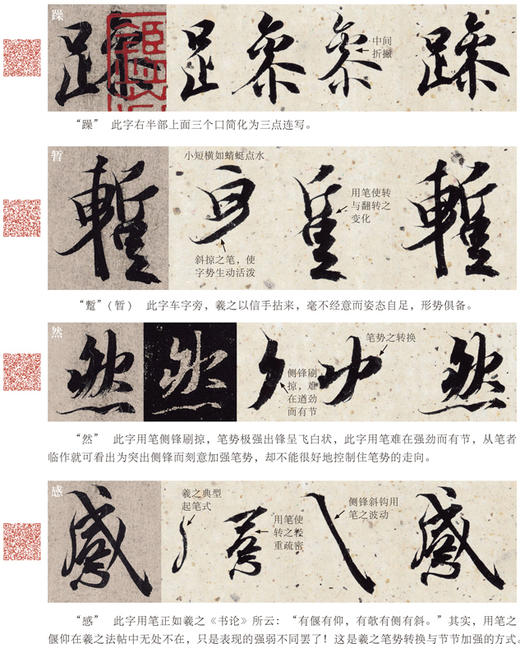 躁
中间
折撇
“躁” 此字右半部上面三个口简化为三点连写。
暂
小短横如蜻蜓点水
斜掠之笔，使
字势生动活泼
用笔使转
与翻转之
变化
“蹔”（暂） 此字车字旁，羲之以信手拈来，毫不经意而姿态自足，形势俱备。
然
侧锋刷
掠，难
在遒劲
而有节
笔势之转换
“然” 此字用笔侧锋刷掠，笔势极强出锋呈飞白状，此字用笔难在强劲而有节，从笔者
临作就可看出为突出侧锋而刻意加强笔势，却不能很好地控制住笔势的走向。
感
羲之典型
起笔式
用笔使
转之轻
重疏密
侧锋斜钩用
笔之波动
“感” 此字用笔正如羲之《书论》所云：“有偃有仰，有欹有侧有斜。”其实，用笔之
偃仰在羲之法帖中无处不在，只是表现的强弱不同罢了！这是羲之笔势转换与节节加强的方式。